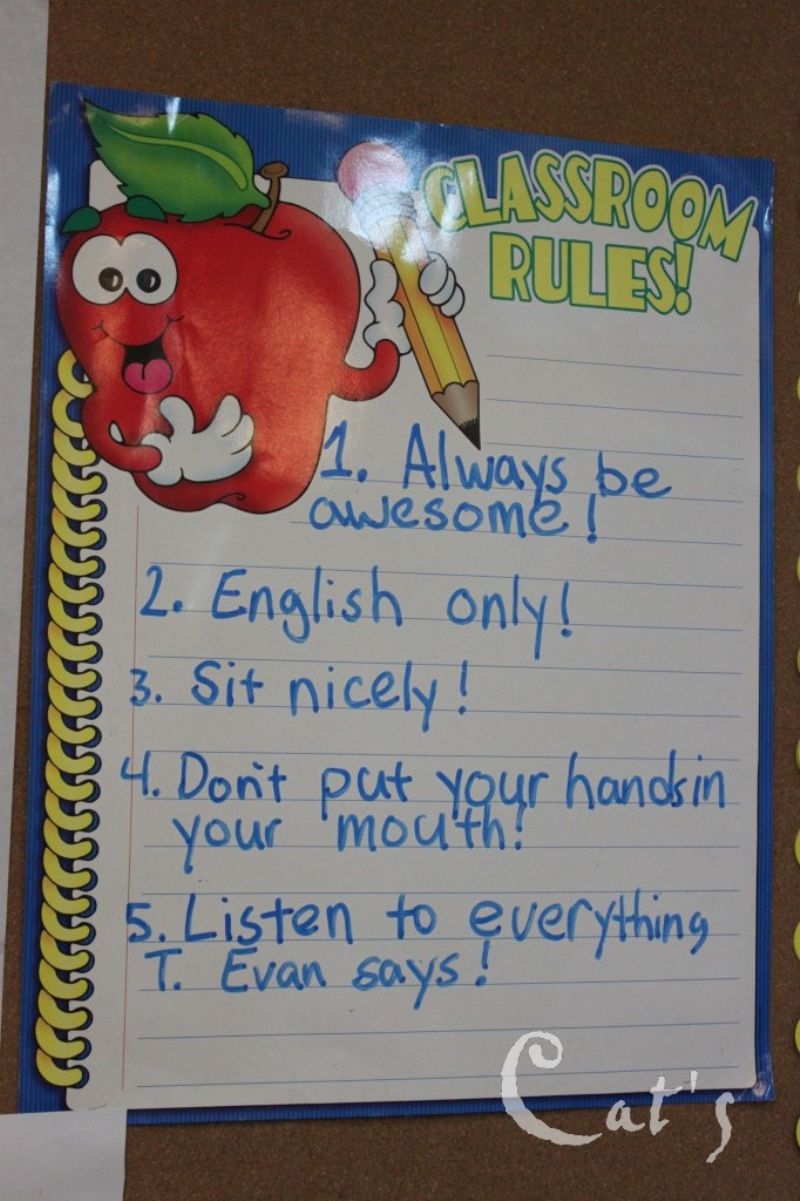 CLASSROOM
RULES!
1. Always be
awesome!
2. English only!
3. Sit nicely!
4. Don't put your hands in
your mouth!
5. Listen to everything
T. Evan says!
Cat's